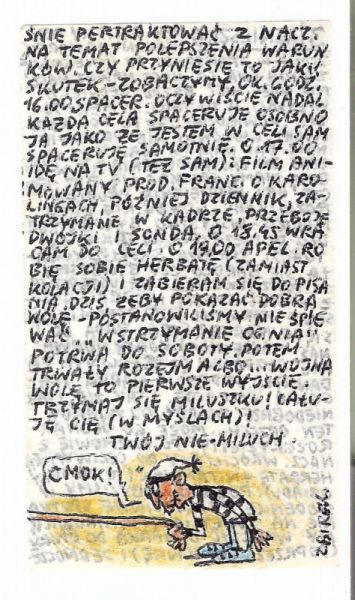 ŚNIE PERTRAKTOWAĆ Z NACZ.
NA TEMAT POLEPSZENIA WARUN
KÓW. CZY PRZYNIESIE TO JAKIŚ
SKUTEK - ZOBACZYMY. OK. GODZ.
16.00 SPACER. OCZYWIŚCIE NADAL
KAŻDA CELA SPACERUJE OSOBNO
JA JAKO ŻE JESTEM W CELI SAM
SPACERUJĘ SAMOTNIE. O 17.00
IDĘ NA TV (TEŻ SAM): FILM ANI-
MOWANY PROD. FRANC. O KARO
LINGACH, PÓŹNIEJ DZIENNIK, ZA-
TRZYMANE W KADRZE, PRZEBOJE
DWÓJKI I SONDA. O 18.45 WRA
CAM DO CELI. O 19.00 APEL. RO
BIĘ SOBIE HERBATĘ (ZAMIAST
KOLACJI) I ZABIERAM SIĘ DO PISA
NIA. DZIŚ ŻEBY POKAZAĆ DOBRĄ
WOLĘ - POSTANOWILIŚMY NIE ŚPIE
WAĆ. „WSTRZYMANIE OGNIA"
POTRWA DO SOBOTY. POTEM
TRWAŁY ROZEJM ALBO... WOJNA
WOLĘ TO PIERWSZE WYJŚCIE.
TRZYMAJ SIĘ MILUSZKU! CAŁU-
JĘ CIĘ (W MYŚLACH)!
TWÓJ NIE-MILUCH.
CMOK!